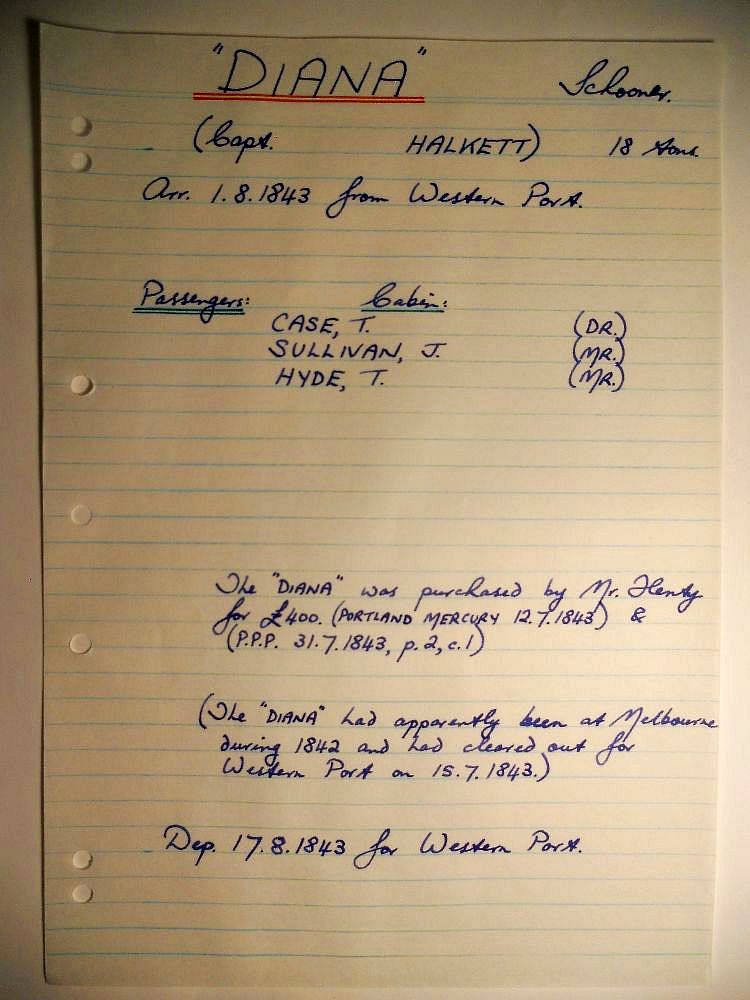 "DIANA" Schooner.
(Capt. HALKETT) 18 tons.
Arr. 1.8.1843 from Western Port.
Passengers: Cabin:
CASE, T. (DR.)
SULLIVAN, J. (MR.)
HYDE, T. (MR.)
The "DIANA" was purchased by Mr. Henty
for £400. (PORTLAND MERCURY 12.7.1843) &
(P.P.P. 31.7.1843, p.2, c.1)
(The "DIANA" had apparently been at Melbourne
during 1842 and had cleared out for
Western Port on 15.7.1843.)
Dep. 17.8.1843 for Western Port.